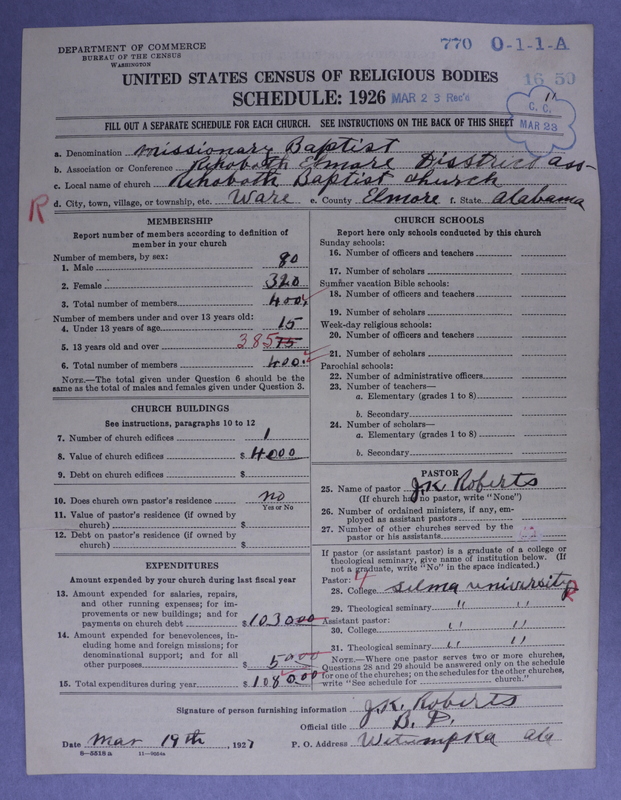 DEPARTMENT OF COMMERCE
BUREAU OF THE CENSUS
WASHINGTON
770 0-1-1-A
UNITED STATES CENSUS OF RELIGIOUS BODIES
16 50
SCHEDULE: 1926 MAR 23 Rec'd
C. C.
MAR 23
FILL OUT A SEPARATE SCHEDULE FOR EACH CHURCH. SEE INSTRUCTIONS ON THE BACK OF THIS SHEET
a. Denomination Missionary Baptist
b. Association or Conference Rihoboth Elmore Disstrict ass-
c. Local name of church Rihoboth Baptist church
R d. City, town, village, or township, etc. Ware e. County Elmore f. State Alabama
MEMBERSHIP
Report number of members according to definition of
member in your church
Number of members, by sex:
1. Male 80
2. Female 320
3. Total number of members 400
Number of members under and over 13 years old:
4. Under 13 years of age 15
5. 13 years old and over 385 75
6. Total number of members 400
NOTE.—The total given under Question 6 should be the
same as the total of males and females given under Question 3.
CHURCH BUILDINGS
See instructions, paragraphs 10 to 12
7. Number of church edifices 1
8. Value of church edifices $ 4000
9. Debt on church edifices $
10. Does church own pastor's residence no
Yes or No
11. Value of pastor's residence (if owned by
church) $
12. Debt on pastor's residence (if owned by
church) $
EXPENDITURES
Amount expended by your church during last fiscal year
13. Amount expended for salaries, repairs,
and other running expenses; for im-
provements or new buildings; and for
payments on church debt $ 1030 00
14. Amount expended for benevolences, in-
cluding home and foreign missions; for
denominational support; and for all
other purposes $ 50 00
15. Total expenditures during year $ 1080.00
CHURCH SCHOOLS
Report here only schools conducted by this church
Sunday schools:
16. Number of officers and teachers
17. Number of scholars
Summer vacation Bible schools:
18. Number of officers and teachers
19. Number of scholars
Week-day religious schools:
20. Number of officers and teachers
21. Number of scholars
Parochial schools:
22. Number of administrative officers
23. Number of teachers—
a. Elementary (grades 1 to 8)
b. Secondary
24. Number of scholars—
a. Elementary (grades 1 to 8)
b. Secondary
PASTOR
25. Name of pastor J.K. Roberts
(If church has no pastor, write "None")
26. Number of ordained ministers, if any, em-
ployed as assistant pastors
27. Number of other churches served by the
pastor or his assistants
If pastor (or assistant pastor) is a graduate of a college or
theological seminary, give name of institution below. (If
not a graduate, write "No" in the space indicated.)
Pastor: 4
28. College Selma university R
29. Theological seminary " "
Assistant pastor:
30. College " "
31. Theological seminary " "
NOTE.—Where one pastor serves two or more churches,
Questions 28 and 29 should be answered only on the schedule
for one of the churches; on the schedules for the other churches,
write "See schedule for church."
Signature of person furnishing information J.K. Roberts
Official title B. D.
Date Mar 19th, 1927 P. O. Address Witumpka ala
8—5518 a 11—9064a